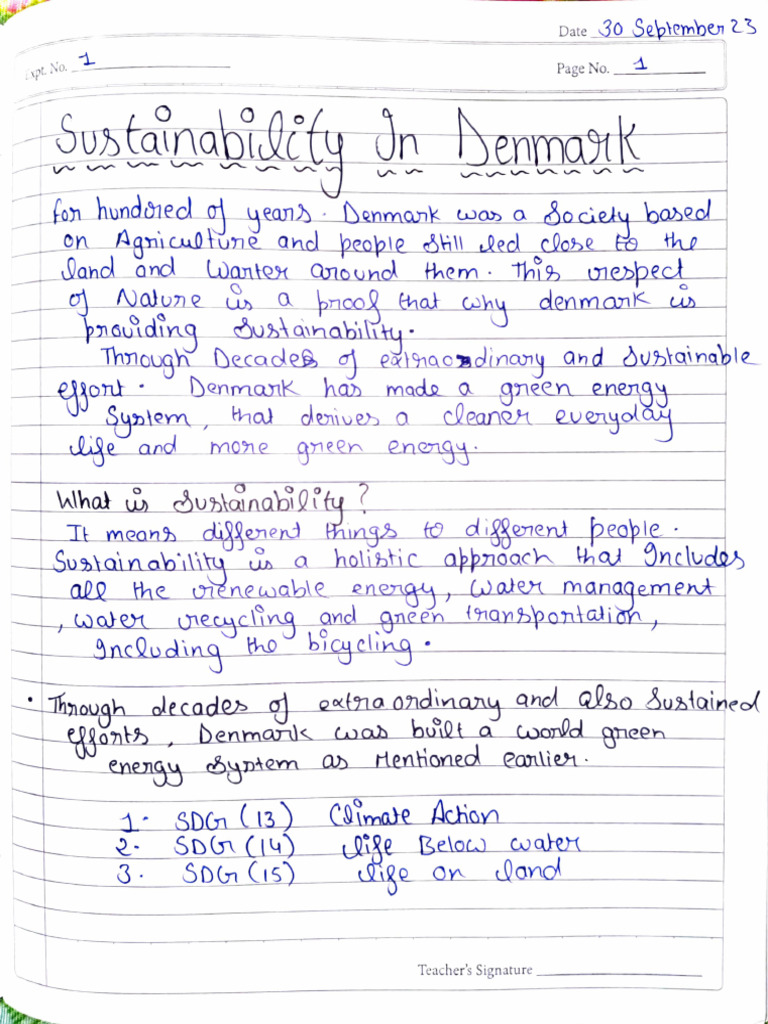 Date 30 September 23
Expt. No. 1
Page No. 1
Sustainability In Denmark
for hundred of years. Denmark was a Society based
on Agriculture and people still led close to the
land and Warter around them. This respect
of Nature is a proof that why denmark is
providing Sustainability.
Through Decades of extraordinary and sustainable
effort. Denmark has made a green energy
System, that derives a cleaner everyday
life and more green energy.
What is Sustainability?
It means different things to different people.
Sustainability is a holistic approach that Includes
all the renewable energy, water management
, water recycling and green transportation,
Including the bicycling.
• Through decades of extraordinary and also Sustained
efforts, Denmark was built a world green
energy System as Mentioned earlier.
1. SDG (13) Climate Action
2. SDG (14) life Below water
3. SDG (15) life on land
Teacher's Signature